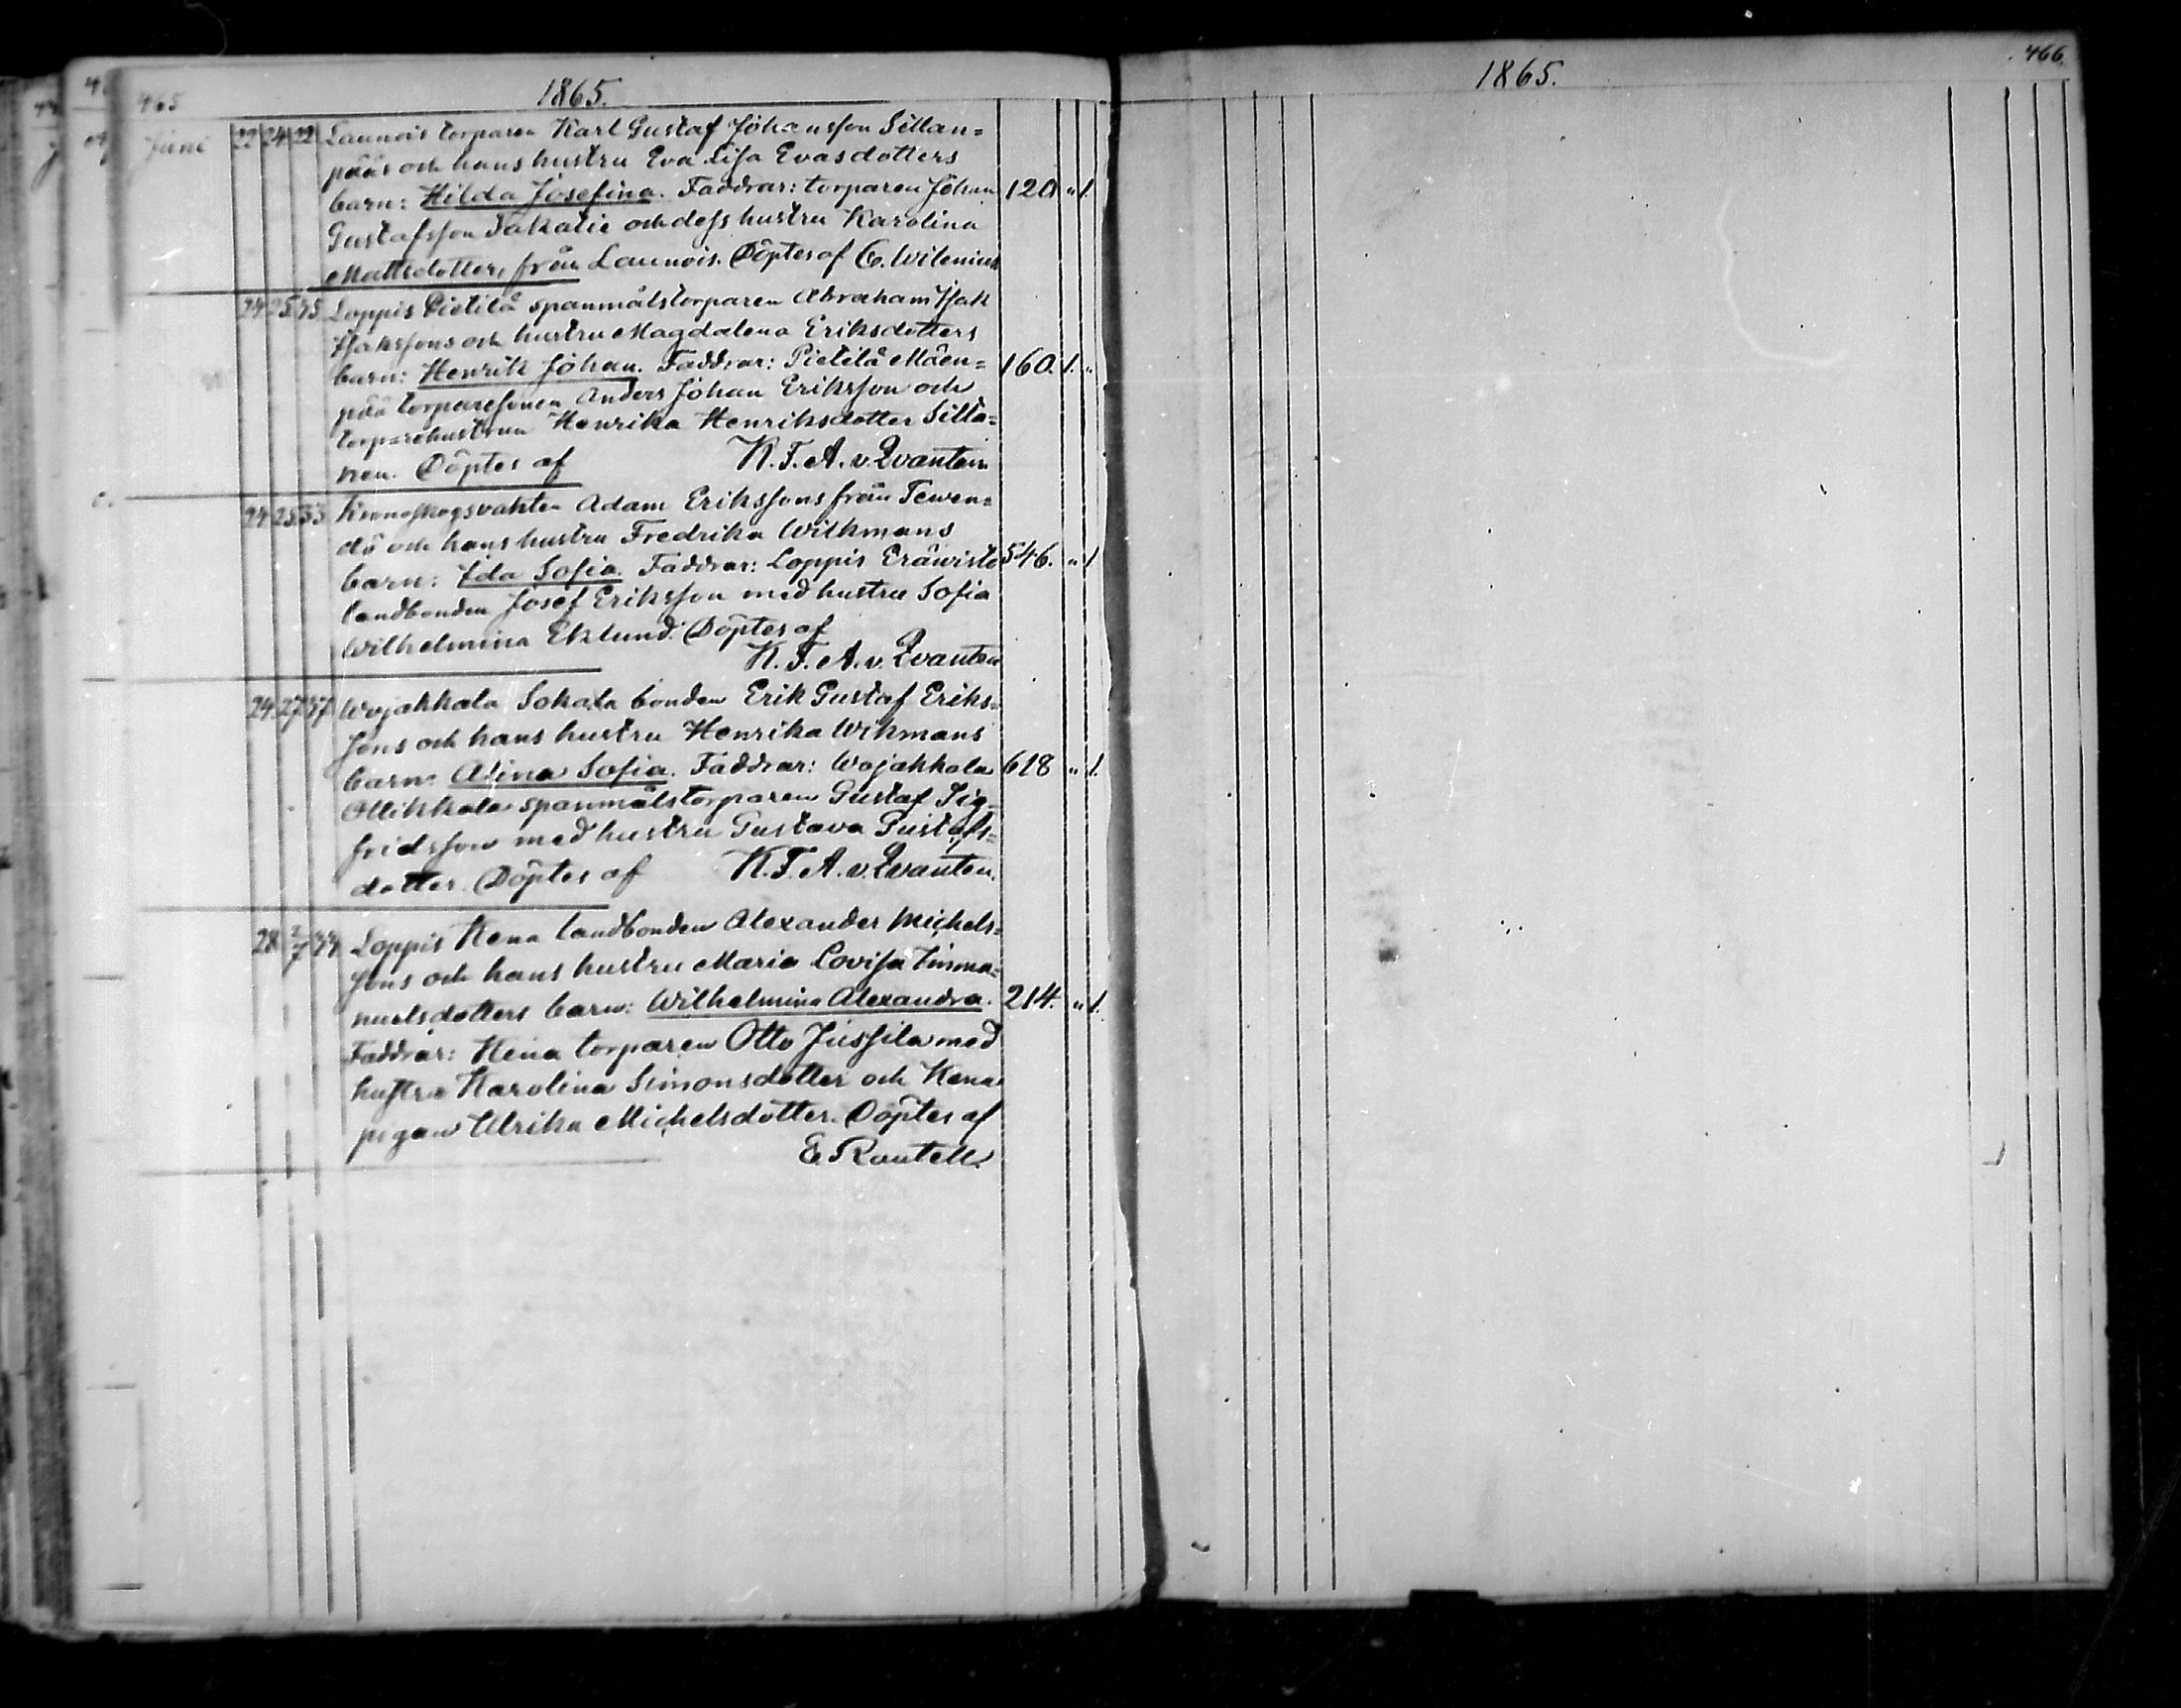 465
1865.
Juni 22 24 22 Launois torparen Karl Gustaf Johansson Sillan=
pääs och hans hustru Eva Lisa Evasdotters
barn: Hilda Josefina. Faddrar: torparen Johan 120 " 1.
Gustafsson Takalie och dess hustru Karolina
Mattsdotter, från Launois. Döptes af C. Wilenius
24 25 45 Loppis Pietilä spanmålstorparen Abraham Isak
Isakssons och hustru Magdalena Eriksdotters
barn: Henrik Johan. Faddrar: Pietilä Mäen= 160. 1. "
pää torparesonen Anders Johan Eriksson och
torparehustrun Henrika Henriksdotter Silla=
nen. Döptes af K. F. A. v. Qvanten
24 25 33 Kronoskogsvakten Adam Erikssons från Tewen=
dö och hans hustru Fredrika Wilkmans
barn: Ida Sofia. Faddrar: Loppis Eräwisto 546. " 1
landbonden Josef Eriksson med hustru Sofia
Wilhelmina Eklund. Döptes af
K. F. A. v. Qvanten
24 27 37 Wojakkala Sokala bonden Erik Gustaf Eriks=
sons och hans hustru Henrika Wikmans
barn: Alina Sofia. Faddrar: Wojakkala 618 " 1.
Ollikkala spanmålstorparen Gustaf Sig=
fridsson med hustru Gustava Gustafs=
dotter. Döptes af K. F. A. v. Qvanten.
28 2/7 44 Loppis Kena landbonden Alexander Michels=
sons och hans hustru Maria Lovisa Imma=
nuelsdotters barn: Wilhelmina Alexandra. 214. " 1.
Faddrar: Kena torparen Otto Jussila med
hustru Karolina Simonsdotter och Kena
pigan Ulrika Michelsdotter. Döptes af
E. Rautell.
1865.
466.